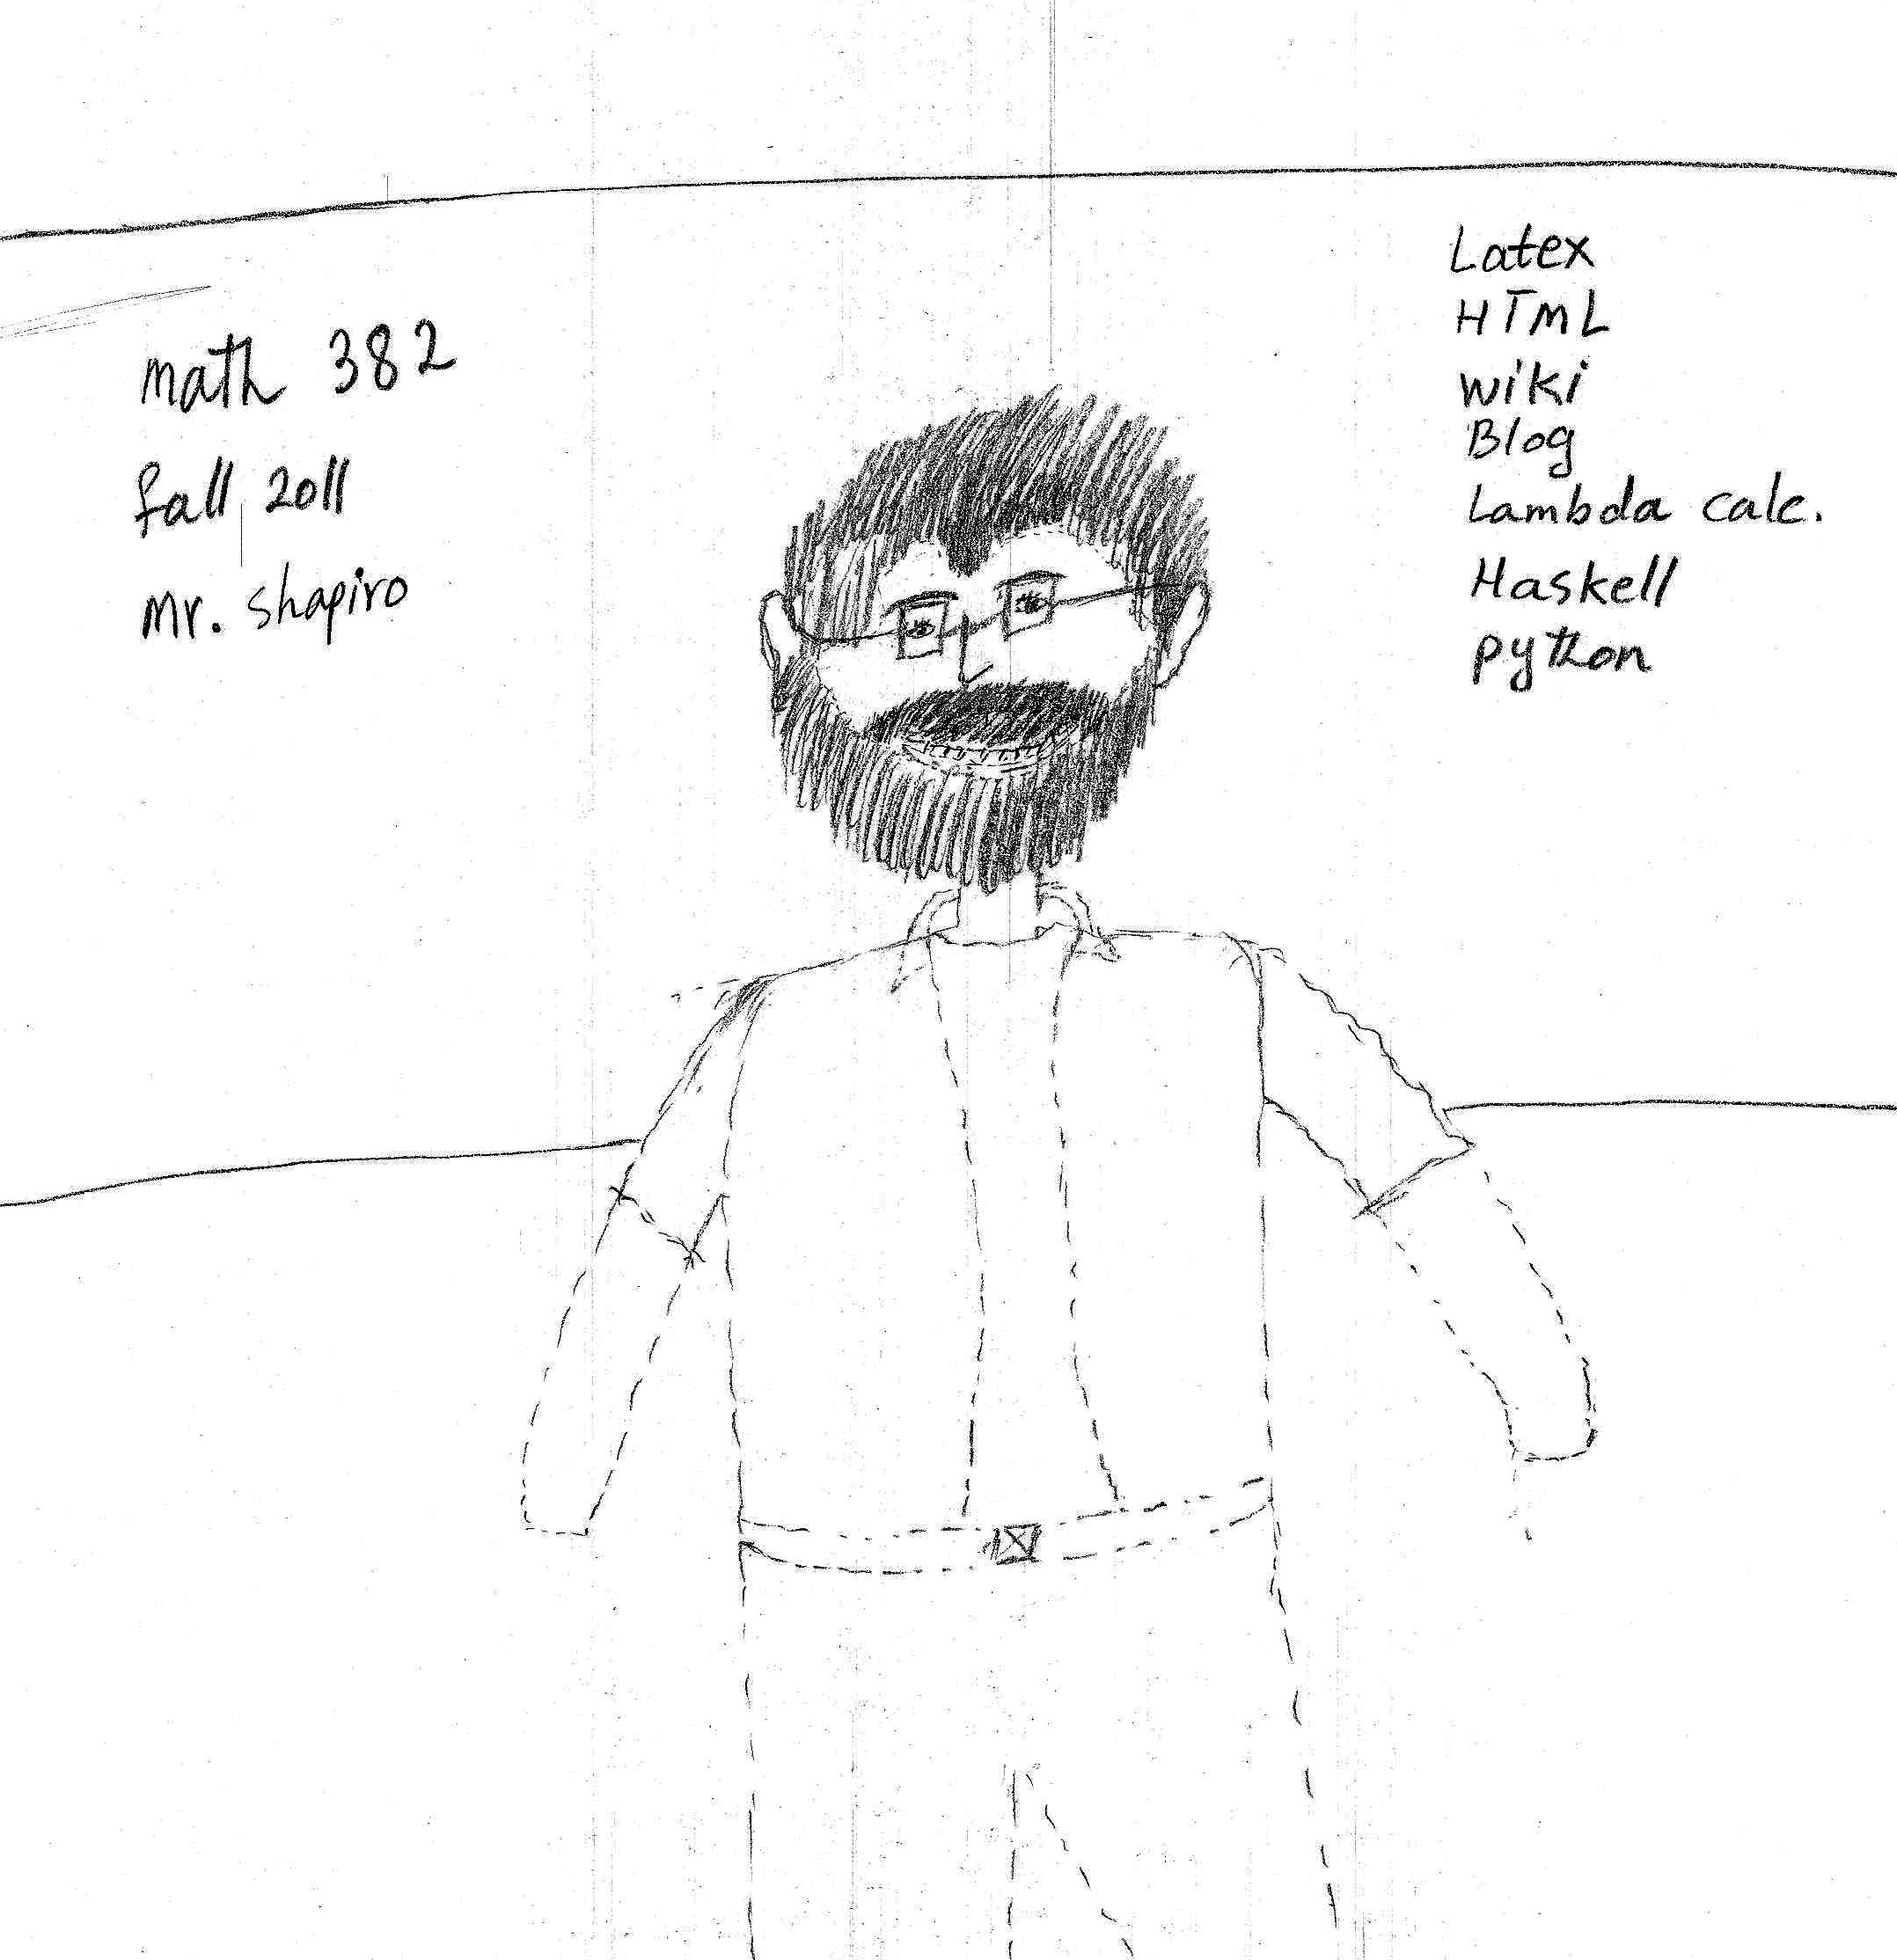 math 382
fall 2011
Mr. shapiro
Latex
HTML
wiki
Blog
Lambda calc.
Haskell
python